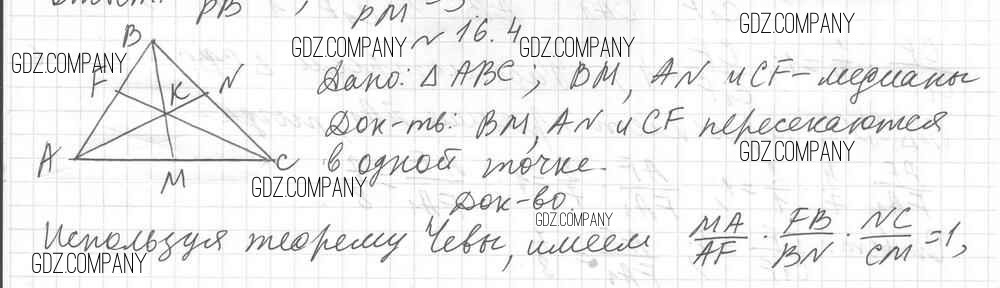 PB ; PM
№ 16.4
Дано: △ABC; BM, AN и CF - медианы
Док-ть: BM, AN и CF пересекаются
в одной точке.
Док-во.
Используя теорему Чевы, имеем MA/AF · FB/BN · NC/CM = 1,
B
F
K
N
A
M
C
GDZ.COMPANY
GDZ.COMPANY
GDZ.COMPANY
GDZ.COMPANY
GDZ.COMPANY
GDZ.COMPANY
GDZ.COMPANY
GDZ.COMPANY